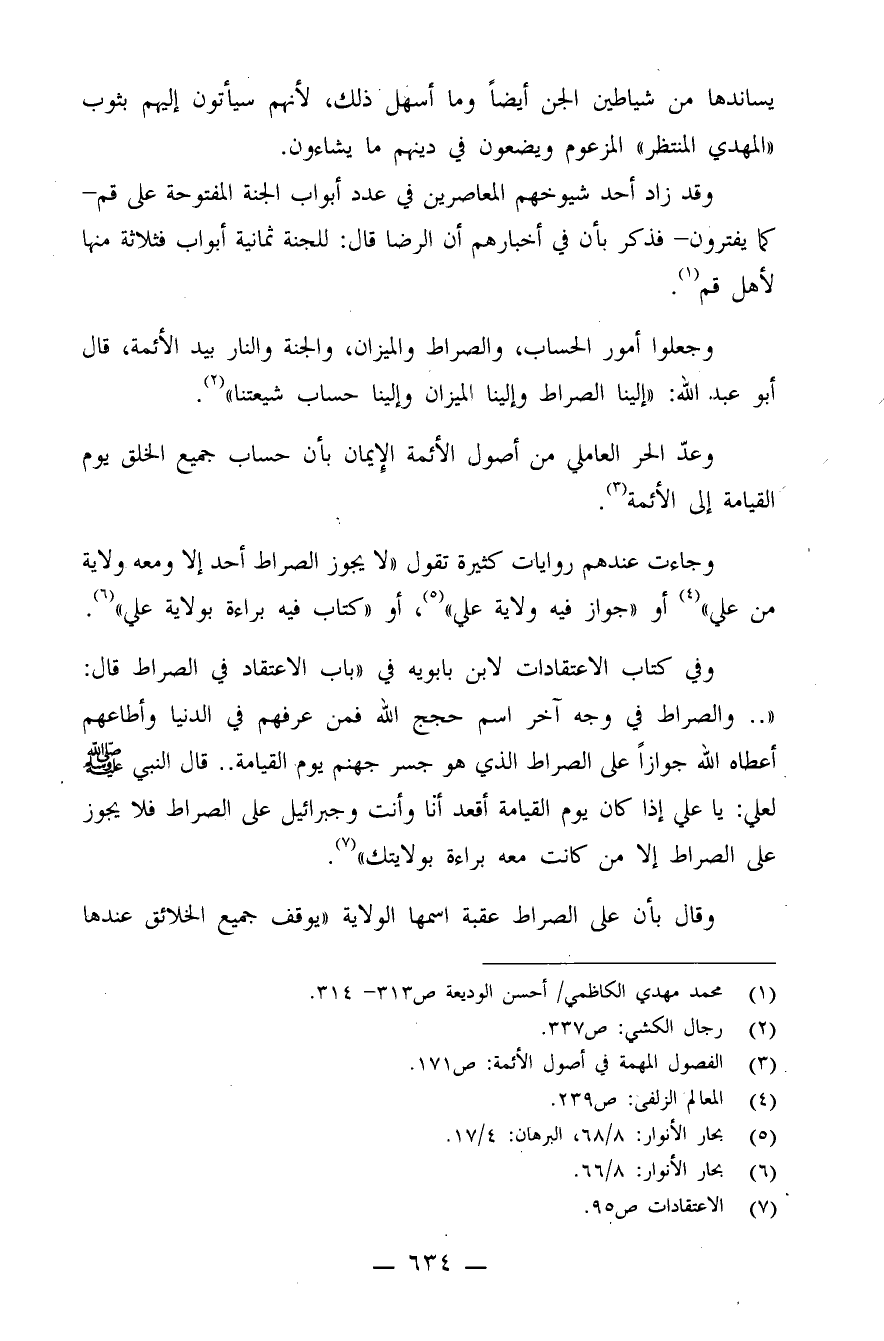 يساندها من شياطين الجن أيضاً وما أسهل ذلك، لأنهم سيأتون إليهم بثوب
«المهدي المنتظر» المزعوم ويضعون في دينهم ما يشاءون.
وقد زاد أحد شيوخهم المعاصرين في عدد أبواب الجنة المفتوحة على قم–
كما يفترون– فذكر بأن في أخبارهم أن الرضا قال: للجنة ثمانية أبواب فثلاثة منها
لأهل قم(١).
وجعلوا أمور الحساب، والصراط والميزان، والجنة والنار بيد الأئمة، قال
أبو عبد الله: «إلينا الصراط وإلينا الميزان وإلينا حساب شيعتنا»(٢).
وعدّ الحر العاملي من أصول الأئمة الإيمان بأن حساب جميع الخلق يوم
القيامة إلى الأئمة(٣).
وجاءت عندهم روايات كثيرة تقول «لا يجوز الصراط أحد إلا ومعه ولاية
من علي»(٤) أو «جواز فيه ولاية علي»(٥)، أو «كتاب فيه براءة بولاية علي»(٦).
وفي كتاب الاعتقادات لابن بابويه في «باب الاعتقاد في الصراط قال:
«.. والصراط في وجه آخر اسم حجج الله فمن عرفهم في الدنيا وأطاعهم
أعطاه الله جوازاً على الصراط الذي هو جسر جهنم يوم القيامة.. قال النبي ﷺ
لعلي: يا علي إذا كان يوم القيامة أقعد أنا وأنت وجبرائيل على الصراط فلا يجوز
على الصراط إلا من كانت معه براءة بولايتك»(٧).
وقال بأن على الصراط عقبة اسمها الولاية «يوقف جميع الخلائق عندها
(١) محمد مهدي الكاظمي/ أحسن الوديعة ص٣١٣– ٣١٤.
(٢) رجال الكشي: ص٣٣٧.
(٣) الفصول المهمة في أصول الأئمة: ص١٧١.
(٤) المعالم الزلفى: ص٢٣٩.
(٥) بحار الأنوار: ٦٨/٨، البرهان: ١٧/٤.
(٦) بحار الأنوار: ٦٦/٨.
(٧) الاعتقادات ص٩٥.
— ٦٣٤ —